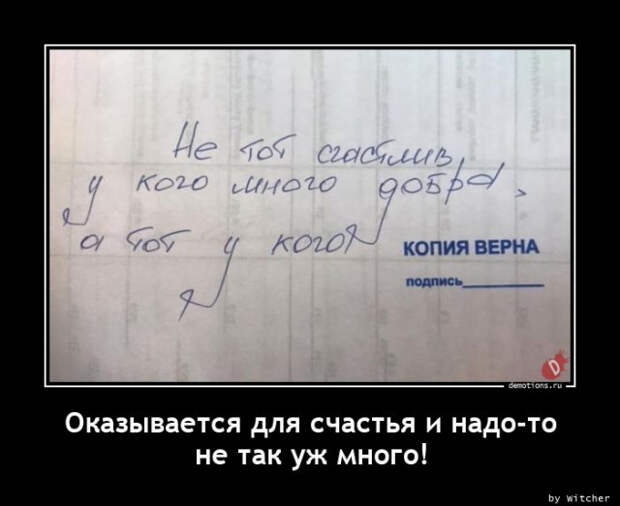 Не тот счастлив,
у кого много добра,
а тот у кого
КОПИЯ ВЕРНА
подпись
demotions.ru
Оказывается для счастья и надо-то
не так уж много!
by Witcher